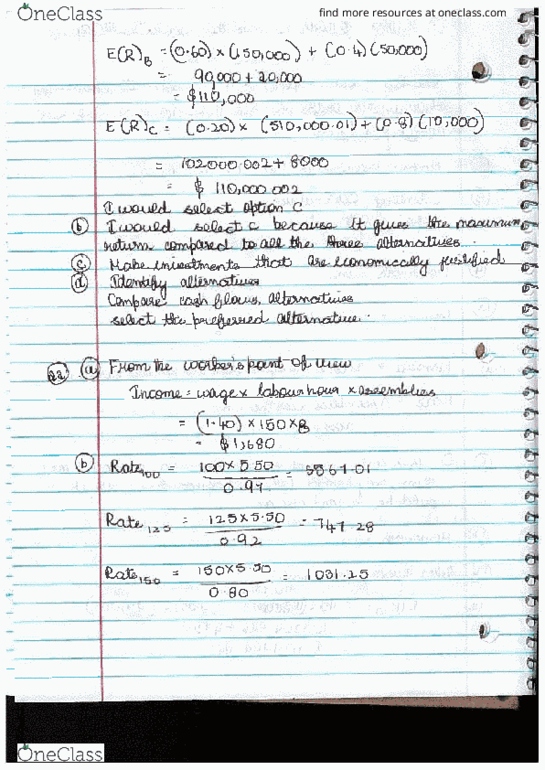 OneClass
find more resources at oneclass.com
E(R)B = (0.60) × (150,000) + (0.4)(50,000)
= 90,000 + 20,000
= $110,000
E(R)C = (0.20) × (510,000.01) + (0.8)(10,000)
= 102000.002 + 8000
= $ 110,000.002
I would select option C
(b) I would select c because it gives the maximum
return compared to all the three alternatives.
(c) Make investments that are economically justified
(d) Identify alternatives
Compare cash flows, alternatives
select the preferred alternative.
22 (a) From the worker's point of view
Income = wage × labour hour × assemblies
= (1.40) × 150 × 8
= $1,680
(b) Rate100 = 100 × 5.50 / 0.97 = 5567.01
Rate125 = 125 × 5.50 / 0.92 = 747.28
Rate150 = 150 × 5.50 / 0.80 = 1031.25
OneClass